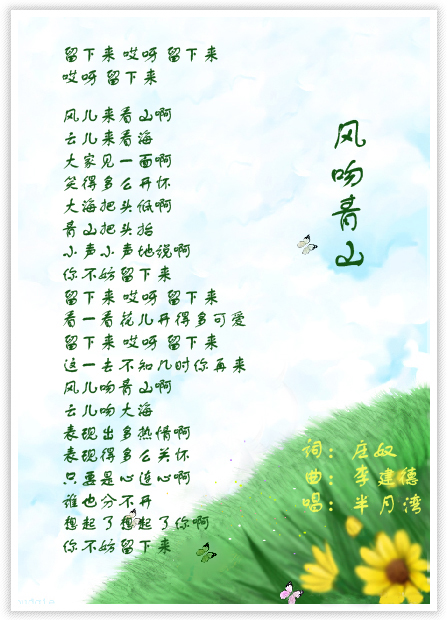 留下来 哎呀 留下来
哎呀 留下来
风儿来看山啊
云儿来看海
大家见一面啊
笑得多么开怀
大海把头低啊
青山把头抬
小声小声地说啊
你不妨留下来
留下来 哎呀 留下来
看一看花儿开得多可爱
留下来 哎呀 留下来
这一去不知几时你再来
风儿吻青山啊
云儿吻大海
表现出多热情啊
表现得多么关怀
只要是心连心啊
谁也分不开
想起了想起了你啊
你不妨留下来
风吻青山
词：庄奴
曲：李建德
唱：半月湾